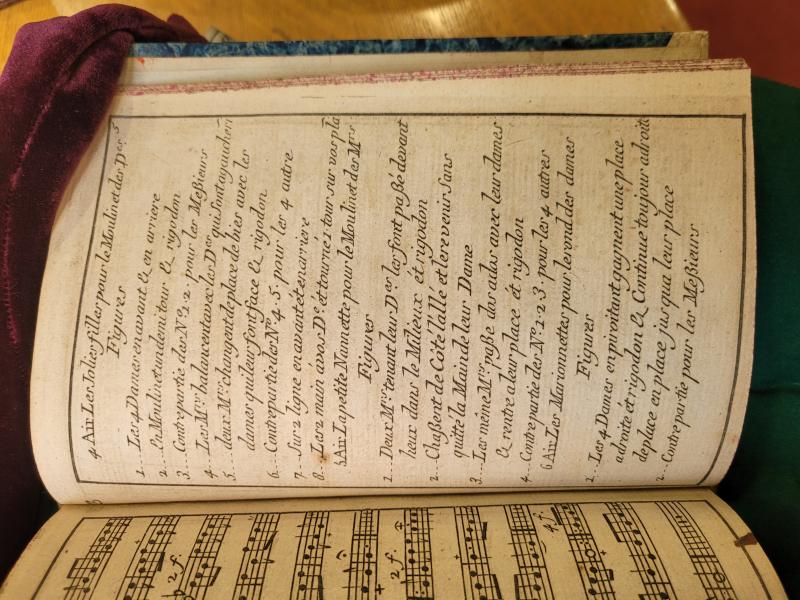 4 Air Les Jolies filles pour le Moulinet des D.es 5
Figures
1... Les 4 Dames en avant & en arriere
2... Un Moulinet un demi tour & rigodon.
3... Contre partie des N.º 1·2· pour les Meßieurs
4... Les M.rs balancent avec les D.es qui sont a gauche
5... deux M.rs changent de place de biès avec les
dames qui leur font face & rigodon
6... Contre partie des N.º 4·5· pour les 4 autre
7... Sur 2 ligne en avant et en arriere
8... Les 2 main a vos D.e et tourné 1 tour sur vos pla
5 Air La petite Nannette pour le Moulinet des M.rs
Figures
1... Deux M.rs tenant leur D.es les font paßé devant
heux dans le Milieux et rigodon
2... Chaßent de Côté l'alle et le revenir sans
quitté la Main de leur Dame
3... Les même M.rs paße dos a dos avec leur dames
& rentre a leur place et rigodon
4... Contre partie des N.º 1·2·3· pour les 4 autres
6 Air Les Marionnettes pour le rond des dames
Figures
1. Les 4 Dames en pivotant gagnent une place
a droite et rigodon & Continue toujour a droite
de place en place jusqu'a leur place
2... Contre partie pour les Meßieurs
2 f.
2 f.
4 f.